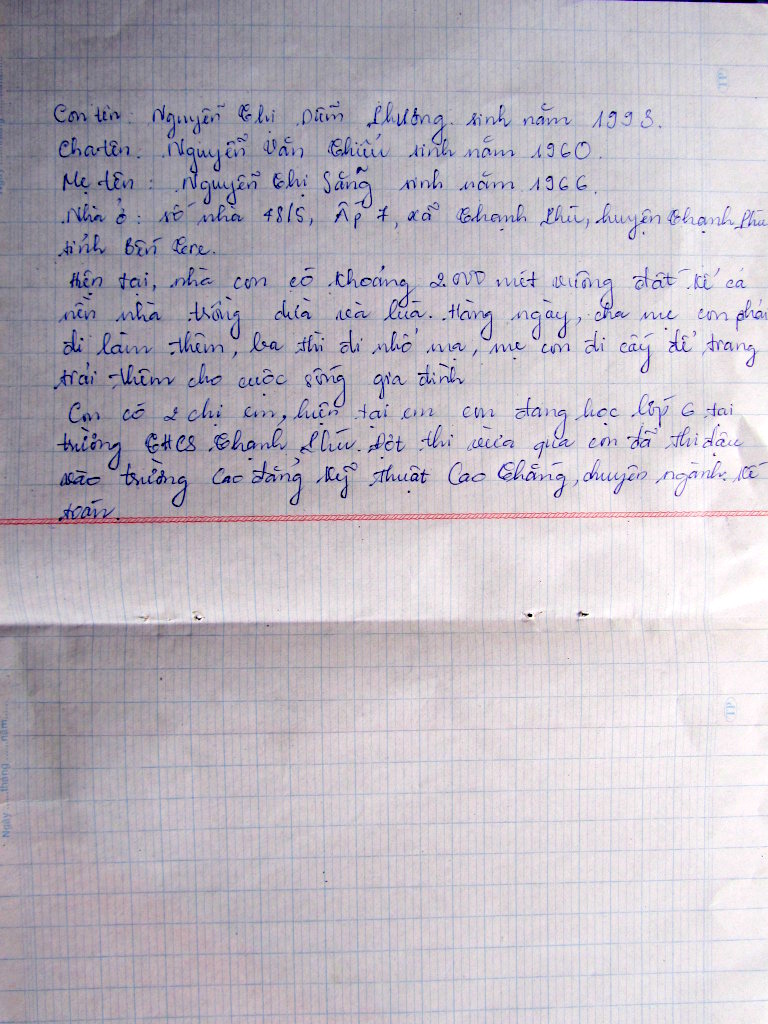 Con tên: Nguyễn Thị Diễm Phương. sinh năm 1993.
Cha tên: Nguyễn Văn Thiếu sinh năm 1960.
Mẹ tên: Nguyễn Thị Sáng sinh năm 1966.
Nhà ở: số nhà 48/5, Ấp 7, xã Thạnh Phú, huyện Thạnh Phú
tỉnh Bến Tre.
Hiện tại, nhà con có khoảng 2.000 mét vuông đất kể cả
nền nhà trồng dừa và lúa. Hàng ngày, cha mẹ con phải
đi làm thêm, ba thì đi nhổ mạ, mẹ con đi cấy để trang
trải thêm cho cuộc sống gia đình
Con có 2 chị em, hiện tại em con đang học lớp 6 tại
trường THCS Thạnh Phú. Đợt thi vừa qua con đã thi đậu
vào trường Cao đẳng Kỹ thuật Cao Thắng, chuyên ngành: Kế
toán.
TP
TP
Ngày.....tháng.....năm.....